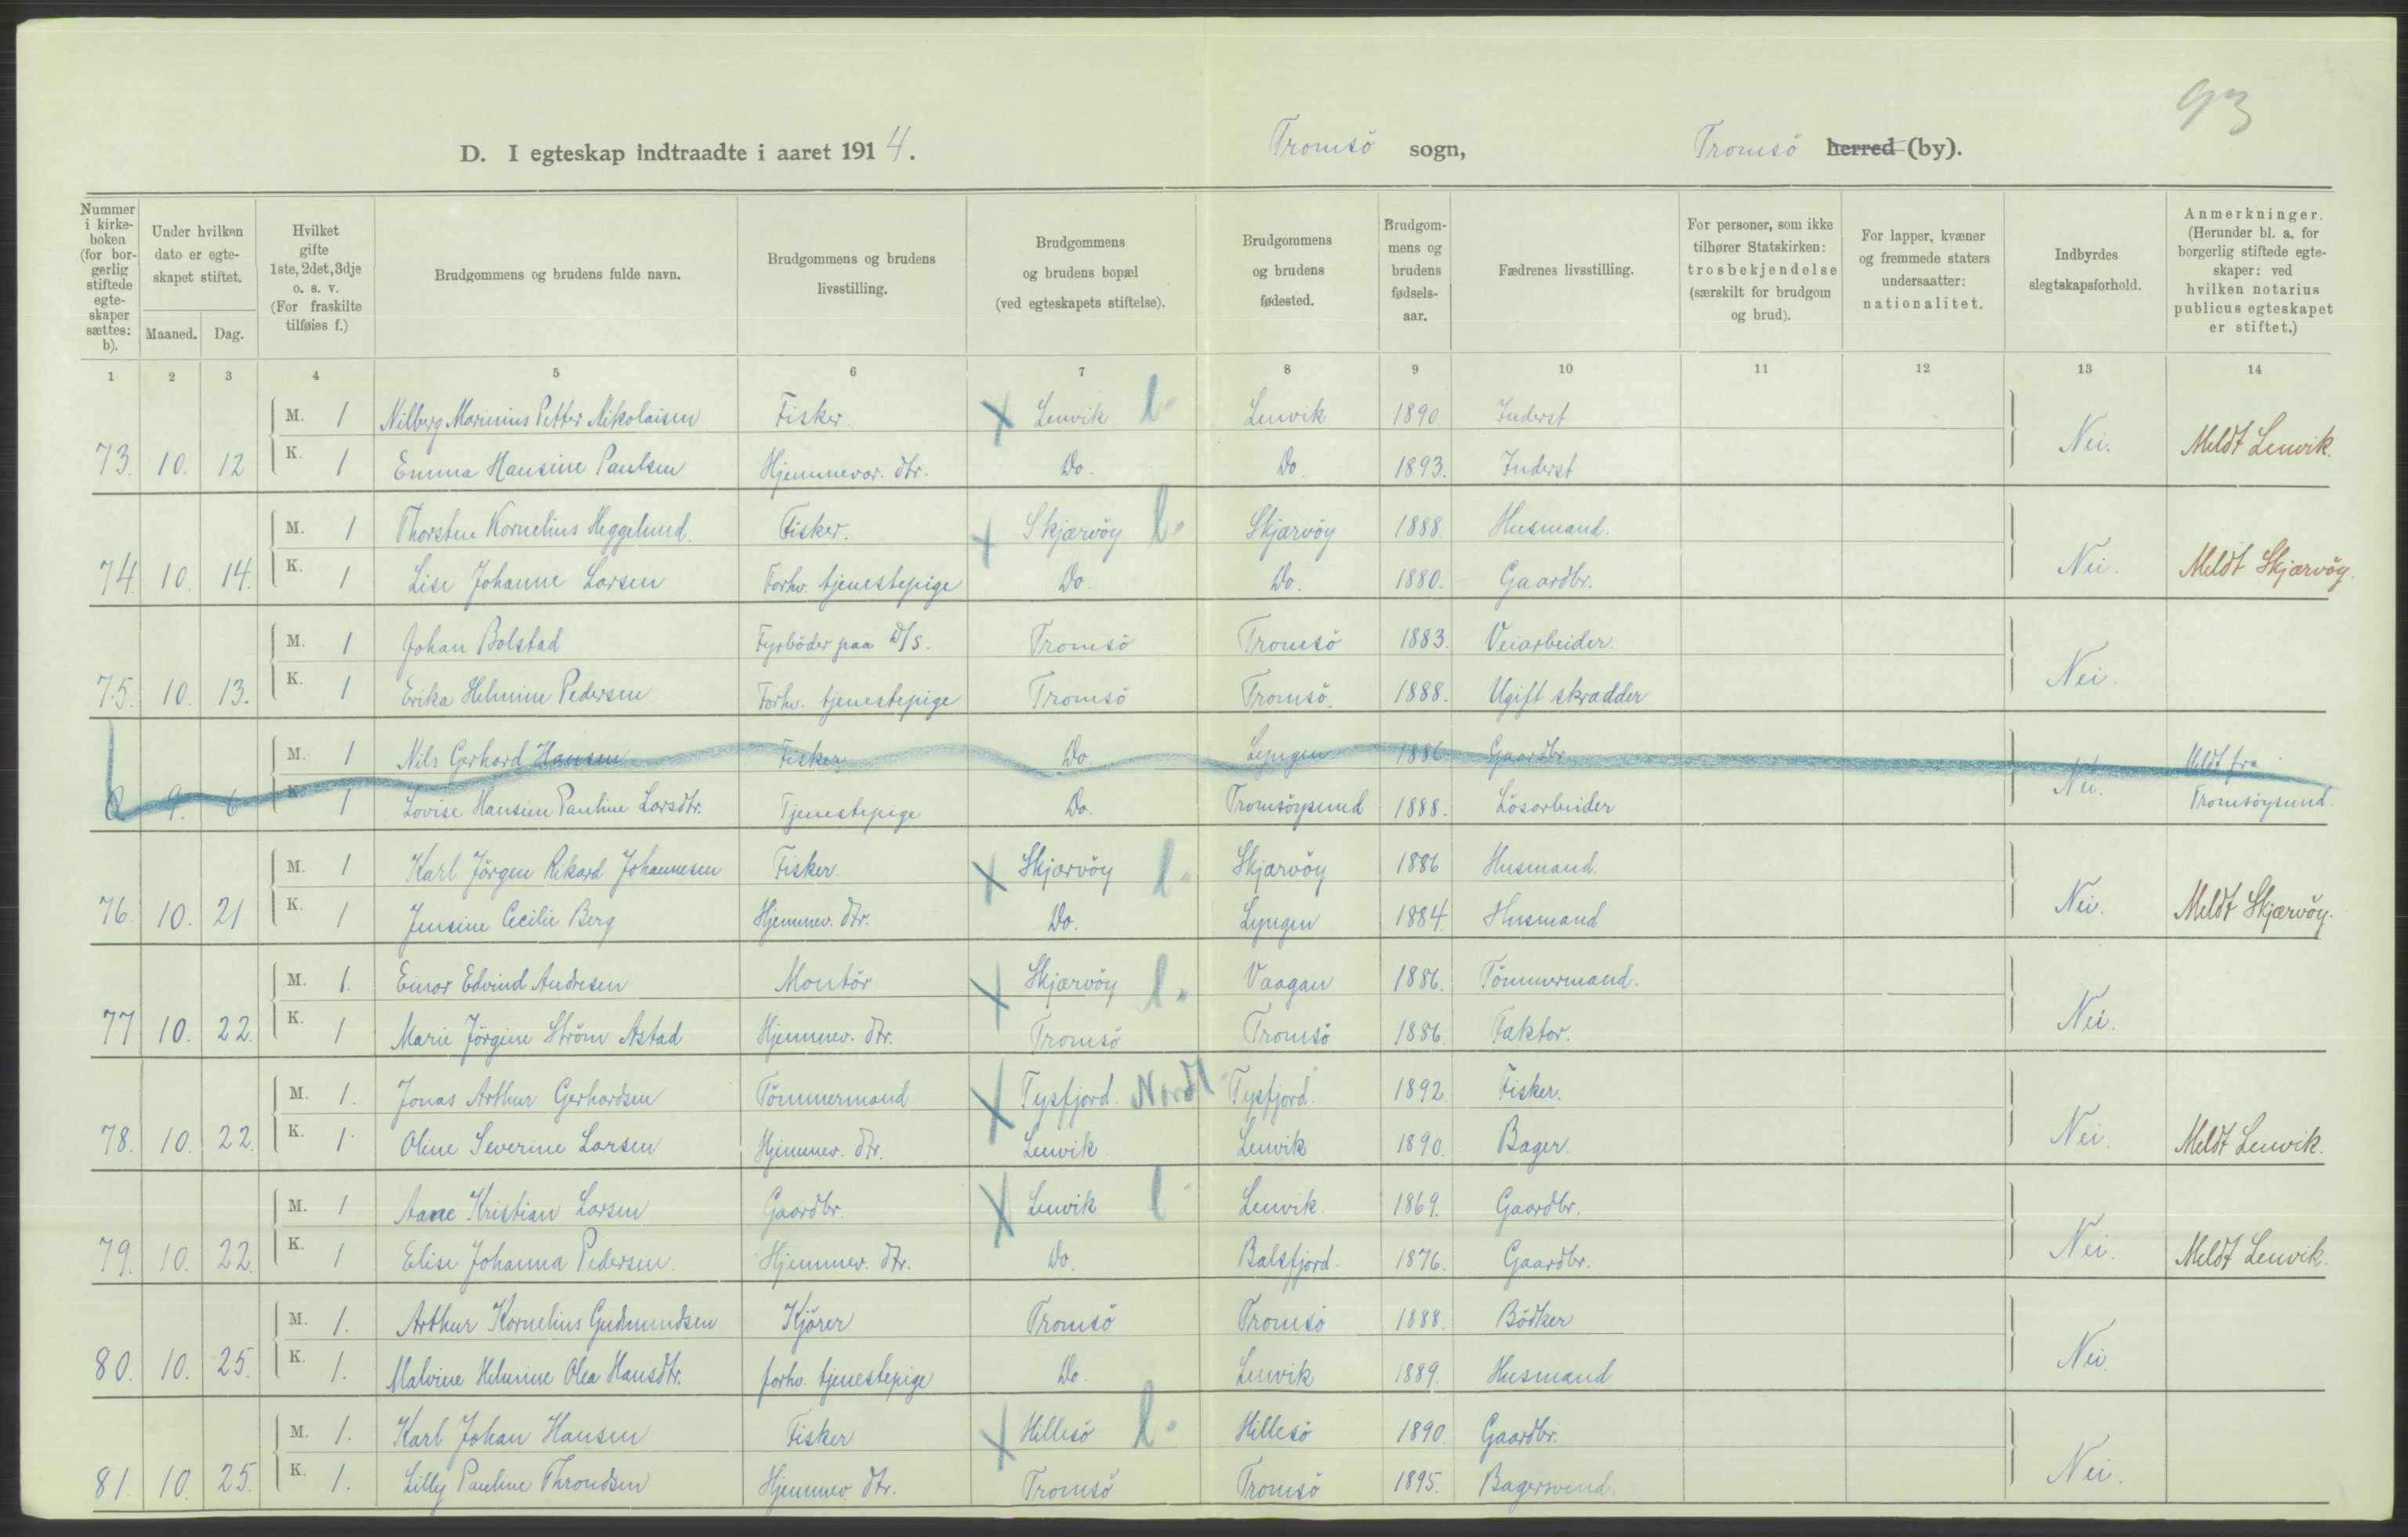 93
D. I egteskap indtraadte i aaret 1914. Tromsö sogn, Tromsö herred (by).
Nummer i kirkeboken (for borgerlig stiftede egteskaper sættes: b). Under hvilken dato er egteskapet stiftet. Maaned. Dag. Hvilket gifte 1ste, 2det, 3dje o. s. v. (For fraskilte tilføies f.) Brudgommens og brudens fulde navn. Brudgommens og brudens livsstilling. Brudgommens og brudens bopæl (ved egteskapets stiftelse). Brudgommens og brudens fødested. Brudgommens og brudens fødselsaar. Fædrenes livsstilling. For personer, som ikke tilhører Statskirken: trosbekjendelse (særskilt for brudgom og brud). For lapper, kvæner og fremmede staters undersaatter: nationalitet. Indbyrdes slegtskapsforhold. Anmerkninger. (Herunder bl. a. for borgerlig stiftede egteskaper: ved hvilken notarius publicus egteskapet er stiftet.)
1 2 3 4 5 6 7 8 9 10 11 12 13 14
M. 1 Nilberg Marinius Petter Nikolaisen Fisker Lenvik l. Lenvik 1890 Inderst
73. 10. 12 K. 1 Emma Hansine Paulsen Hjemmevær. dtr. Do. Do. 1893. Inderst Nei. Meldt Lenvik.
M. 1 Thorsten Kornelius Heggelund. Fisker. Skjærvöy l. Skjærvöy 1888. Husmand.
74. 10. 14. K. 1 Lise Johanne Larsen Forhv. tjenestepige Do. Do. 1880. Gaardbr. Nei. Meldt Skjærvöy.
M. 1 Johan Bolstad Fyrböder paa D/S. Tromsö Tromsö 1883. Veiarbeider.
75. 10. 13. K. 1 Erika Helmine Pedersen Forhv. tjenestepige Tromsö Tromsö. 1888. Ugift skrædder Nei.
M. 1 Nils Gerhard Hansen Fisker Do. Lyngen 1886 Gaardbr. Meldt fra
9. 6 K. 1 Lovise Hansine Pauline Larsdtr. Tjenestepige Do. Tromsöysund 1888. Lösarbeider Nei. Tromsöysund.
M. 1 Karl Jörgen Rikard Johannesen Fisker. Skjærvöy l. Skjærvöy 1886 Husmand.
76. 10. 21 K. 1 Jensine Cecilie Berg Hjemmev. dtr. Do. Lyngen 1884. Husmand Nei. Meldt Skjærvöy.
M. 1. Einar Edvind Andresen Montör Skjærvöy l. Vaagan 1886. Tömmermand.
77 10. 22. K. 1 Marie Jörgine Ström Astad Hjemmev. dtr. Tromsö Tromsö 1886. Faktor. Nei.
M. 1. Jonas Arthur Gerhardsen Tömmermand Tysfjord. Nordl. Tysfjord. 1892 Fisker.
78. 10. 22. K. 1. Oline Severine Larsen Hjemmev. dtr. Lenvik Lenvik 1890. Bager. Nei. Meldt Lenvik.
M. 1 Aane Kristian Larsen Gaardbr. Lenvik l Lenvik. 1869. Gaardbr.
79. 10. 22. K. 1 Elise Johanna Pedersen. Hjemmev. dtr. Do. Balsfjord. 1876. Gaardbr. Nei. Meldt Lenvik.
M. 1. Arthur Kornelius Gudmundsen Kjörer Tromsö Tromsö 1888. Bödker
80. 10. 25. K. 1. Malvine Helmine Olea Hansdtr. forhv. tjenestepige Do. Lenvik 1889. Husmand Nei.
M. 1. Karl Johan Hansen Fisker Hillesö l. Hillesö 1890. Gaardbr.
81. 10. 25. K. 1. Lilly Pauline Throndsen Hjemmev. dtr. Tromsö Tromsö 1895. Bagersvend. Nei.